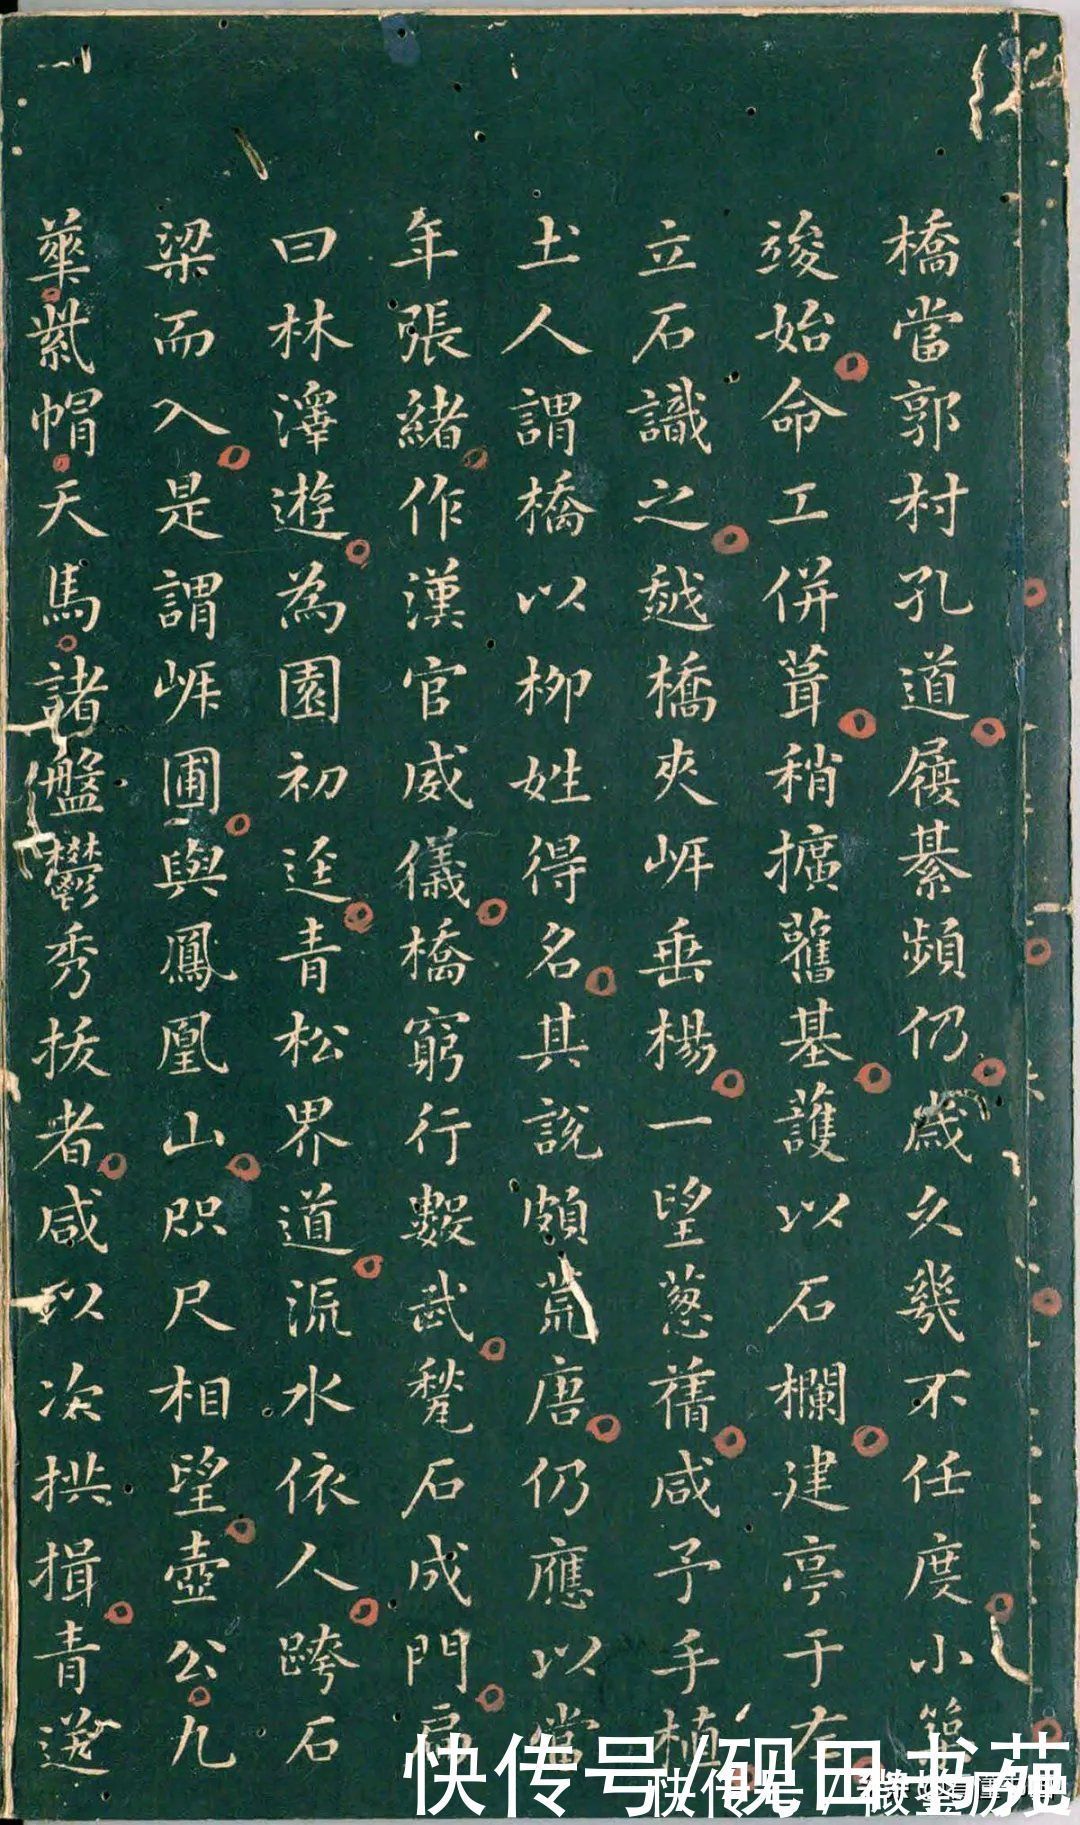 橋當郭村孔道屐綦頻仍歲久幾不任度小築
竣始命工併葺稍擴舊基護以石欄建亭于右
立石識之越橋夾岸垂楊一望蔥蒨咸予手植
土人謂橋以柳姓得名其說頗荒唐仍應以當
年張緒作漢官威儀橋窮行數武甃石成門扁
曰林澤遊為園初逕青松界道流水依人跨石
梁而入是謂岸圃與鳳凰山咫尺相望壺公九
華紫帽天馬諸盤鬱秀拔者咸以次拱揖青送
快传号/砚田书苑
快传号/